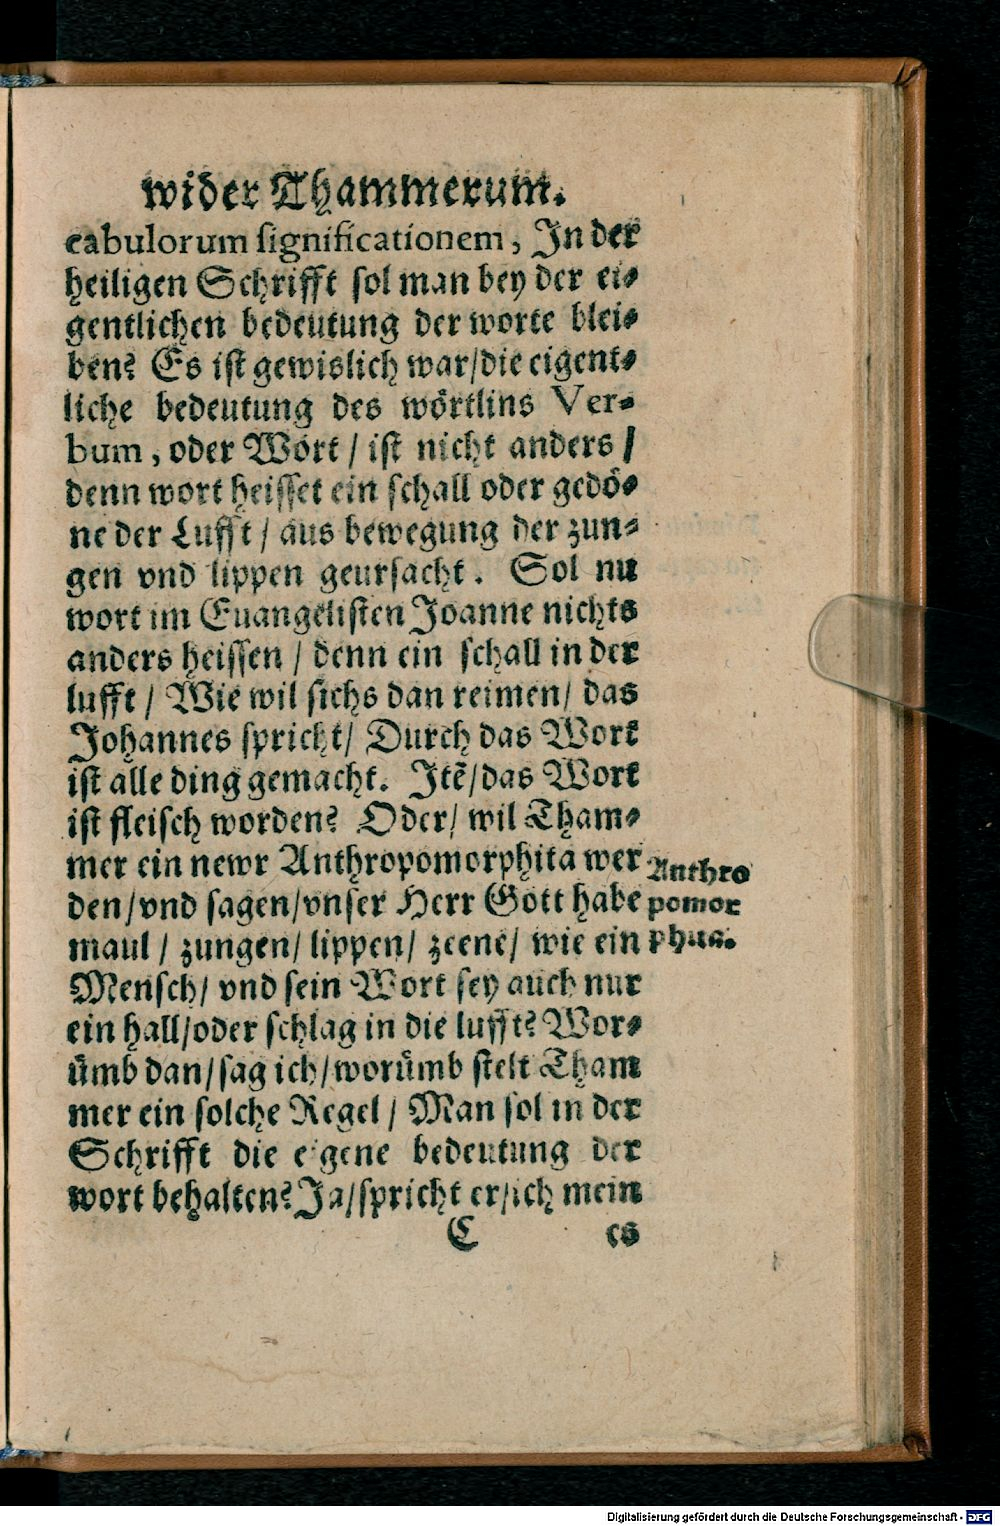 wider Thammerum.
cabulorum significationem, In der
heiligen Schrifft sol man bey der ei⸗
gentlichen bedeutung der worte blei⸗
ben? Es ist gewislich war/die eigent⸗
liche bedeutung des wörtlins Ver⸗
bum, oder Wort / ist nicht anders /
denn wort heisset ein schall oder gedö⸗
ne der Lufft / aus bewegung der zun⸗
gen vnd lippen geursacht. Sol nu
wort im Euangelisten Joanne nichts
anders heissen / denn ein schall in der
lufft / Wie wil sichs dan reimen/ das
Johannes spricht/ Durch das Wort
ist alle ding gemacht. Itē/das Wort
ist fleisch worden? Oder/ wil Tham⸗
mer ein newr Anthropomorphita wer
den/vnd sagen/vnser Herr Gott habe
maul / zungen/ lippen/ zeene/ wie ein
Mensch/ vnd sein Wort sey auch nur
ein hall/oder schlag in die lufft? Wor⸗
ümb dan/sag ich/worümb stelt Tham
mer ein solche Regel / Man sol in der
Schrifft die eigene bedeutung der
wort behalten? Ja/spricht er/ich mein
C es
Anthro
pomor
phus.
Digitalisierung gefördert durch die Deutsche Forschungsgemeinschaft - DFG